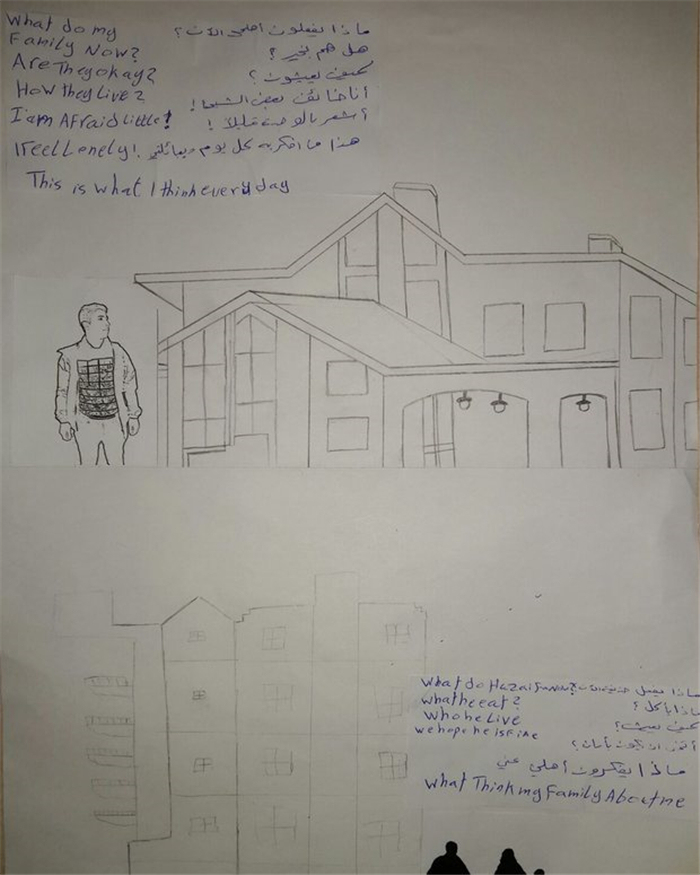 What do my
Family Now?
Are They okay?
How They Live?
I'am AFraid Little!
I Feel Lonely!
This is what I think every day
ماذا يفعلون أهلي الآن؟
هل هم بخير؟
كيف يعيشون؟
أنا خائف بعض الشيء!
أشعر بالوحدة قليلاً!
هذا ما افكر به كل يوم
what do
what he eat?
who he Live
we hope he is Fine
what Think my Family About me
ماذا يأكل؟
كيف يعيش؟
ماذا يفكرون أهلي عني